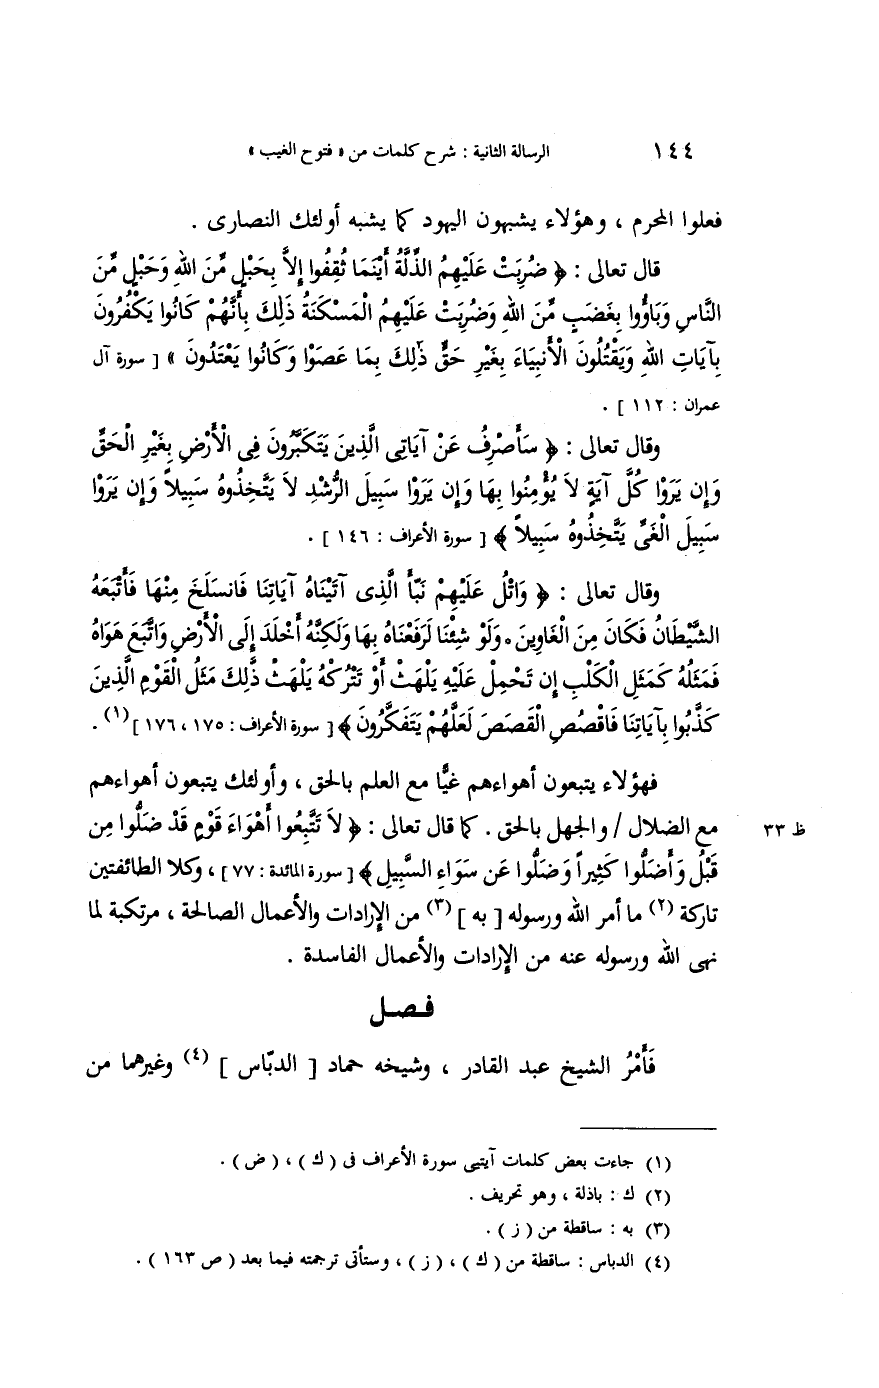 ١٤٤ الرسالة الثانية : شرح كلمات من « فتوح الغيب »
فعلوا المحرم ، وهؤلاء يشبهون اليهود كما يشبه أولئك النصارى .
قال تعالى : ﴿ ضُرِبَتْ عَلَيْهِمُ الذِّلَّةُ أَيْنَمَا ثُقِفُوا إِلاَّ بِحَبْلٍ مِّنَ اللهِ وَحَبْلٍ مِّنَ
النَّاسِ وَبَاؤُوا بِغَضَبٍ مِّنَ اللهِ وَضُرِبَتْ عَلَيْهِمُ الْمَسْكَنَةُ ذَلِكَ بِأَنَّهُمْ كَانُوا يَكْفُرُونَ
بِآيَاتِ اللهِ وَيَقْتُلُونَ الْأَنبِيَاءَ بِغَيْرِ حَقٍّ ذَلِكَ بِمَا عَصَوْا وَكَانُوا يَعْتَدُونَ » [ سورة آل
عمران : ١١٢ ] .
وقال تعالى : ﴿ سَأَصْرِفُ عَنْ آيَاتِى الَّذِينَ يَتَكَبَّرُونَ فِى الْأَرْضِ بِغَيْرِ الْحَقِّ
وَإِن يَرَوْا كُلَّ آيَةٍ لاَ يُؤْمِنُوا بِهَا وَإِن يَرَوْا سَبِيلَ الرُّشْدِ لاَ يَتَّخِذُوهُ سَبِيلاً وَإِن يَرَوْا
سَبِيلَ الْغَىِّ يَتَّخِذُوهُ سَبِيلاً ﴾ [ سورة الأعراف : ١٤٦ ] .
وقال تعالى : ﴿ وَاتْلُ عَلَيْهِمْ نَبَأَ الَّذِى آتَيْنَاهُ آيَاتِنَا فَانسَلَخَ مِنْهَا فَأَتْبَعَهُ
الشَّيْطَانُ فَكَانَ مِنَ الْغَاوِينَ . وَلَوْ شِئْنَا لَرَفَعْنَاهُ بِهَا وَلَكِنَّهُ أَخْلَدَ إِلَى الْأَرْضِ وَاتَّبَعَ هَوَاهُ
فَمَثَلُهُ كَمَثَلِ الْكَلْبِ إِن تَحْمِلْ عَلَيْهِ يَلْهَثْ أَوْ تَتْرُكْهُ يَلْهَثْ ذَّلِكَ مَثَلُ الْقَوْمِ الَّذِينَ
كَذَّبُوا بِآيَاتِنَا فَاقْصُصِ الْقَصَصَ لَعَلَّهُمْ يَتَفَكَّرُونَ ﴾ [ سورة الأعراف : ١٧٥ ، ١٧٦ ] (١) .
فهؤلاء يتبعون أهواءهم غيًّا مع العلم بالحق ، وأولئك يتبعون أهواءهم
ظ ٣٣ مع الضلال / والجهل بالحق . كما قال تعالى : ﴿ لاَ تَتَّبِعُوا أَهْوَاءَ قَوْمٍ قَدْ ضَلُّوا مِن
قَبْلُ وَأَضَلُّوا كَثِيراً وَضَلُّوا عَن سَوَاءِ السَّبِيلِ ﴾ [ سورة المائدة : ٧٧ ] ، وكلا الطائفتين
تاركة (٢) ما أمر الله ورسوله [ به ] (٣) من الإرادات والأعمال الصالحة ، مرتكبة لما
نهى الله ورسوله عنه من الإرادات والأعمال الفاسدة .
فـصـل
فَأَمْرُ الشيخ عبد القادر ، وشيخه حماد [ الدبّاس ] (٤) وغيرهما من
(١) جاءت بعض كلمات آيتيى سورة الأعراف فى ( ك ) ، ( ض ) .
(٢) ك : باذلة ، وهو تحريف .
(٣) به : ساقطة من ( ز ) .
(٤) الدباس : ساقطة من ( ك ) ، ( ز ) ، وستأتى ترجمته فيما بعد ( ص ١٦٣ ) .